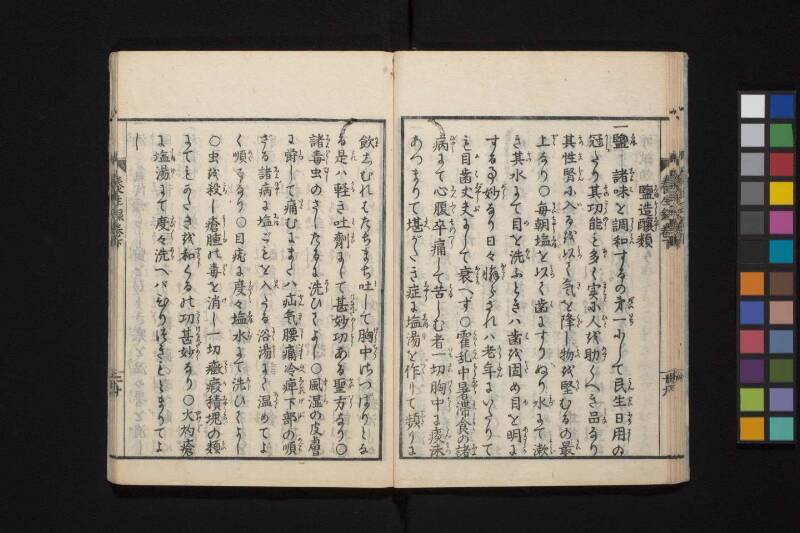 鹽造醸類
一鹽 諸味を調和するの第一にして民生日用の
冠たり其功能も多く実に人を助くへき品なり
其性腎に入る故以く気を降し物を堅むるの最
上なり〇毎朝塩を以て歯にすりぬり水にて漱
き其水にて目を洗ふときハ歯を固め目を明に
する事妙なり日々怠らされハ老年にいたりて
も目歯丈夫にして衰へず〇霍乱中暑滞食の諸
病にて心腹卒痛して苦しむ者一切胸中に痰沫
あつまりて堪がたき症に塩湯を作りて頻りに
飲しむれはたちまち吐して胸中はつぱりとな
る是ハ軽き吐劑にして甚妙功ある聖方なり〇
諸毒虫のさしたるに洗ひてよし〇風湿の皮膚
に欝して痛むにまたハ疝気腰痛冷痺下部の順
ざる諸病に塩ごとを入たる浴湯にて温めてよ
く順るなり〇目痛に度々塩水にて洗ひてよし
〇虫を殺し瘡腫の毒を消し一切癥瘕積塊の類
まてをのぞき和くるの功甚妙なり〇火灼瘡
に塩湯にて度々洗へバひりつきとまりてよ
し